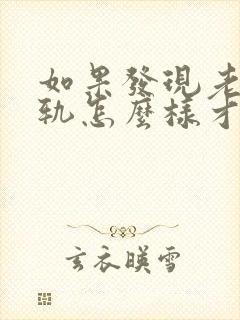 如果發現老
軌怎麼樣才
玄衣暎雪